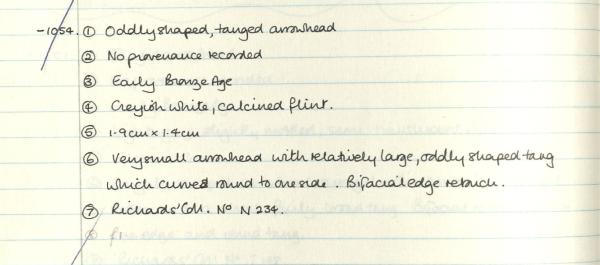 -1054. ① Oddly shaped, tanged arrowhead
② No provenance recorded
③ Early Bronze Age
④ Greyish white, calcined flint.
⑤ 1.9cm x 1.4cm
⑥ Very small arrowhead with relatively large, oddly shaped tang
which curved round to one side. Bifacial edge retouch.
⑦ Richards' Coll. No N 234.